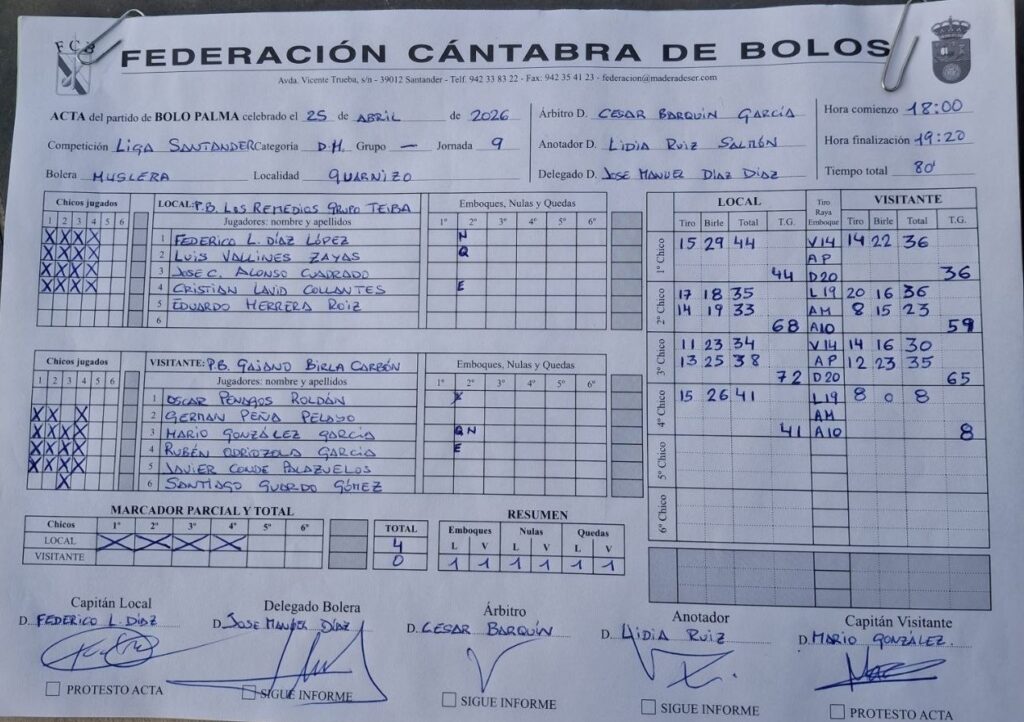 FCB
FEDERACIÓN CÁNTABRA DE BOLOS
Avda. Vicente Trueba, s/n - 39012 Santander - Telf. 942 33 83 22 - Fax: 942 35 41 23 - federacion@maderadeser.com
ACTA del partido de BOLO PALMA celebrado el 25 de ABRIL de 2026
Competición LIGA SANTANDER Categoria D.H. Grupo — Jornada 9
Bolera MUSLERA Localidad GUARNIZO
Árbitro D. CESAR BARQUIN GARCÍA
Anotador D. LIDIA RUIZ SALMÓN
Delegado D. JOSE MANUEL DÍAZ DÍAZ
Hora comienzo 18:00
Hora finalización 19:20
Tiempo total 80'
Chicos jugados LOCAL: P.B. LOS REMEDIOS GRUPO TEIBA Emboques, Nulas y Quedas
1 2 3 4 5 6 Jugadores: nombre y apellidos 1º 2º 3º 4º 5º 6º
X X X X 1 FEDERICO L. DÍAZ LÓPEZ N
X X X X 2 LUIS VALLINES ZAYAS Q
X X X X 3 JOSE C. ALONSO CUADRADO
X X X X 4 CRISTIAN LAVID COLLANTES E
5 EDUARDO HERRERA RUIZ
6
Chicos jugados VISITANTE: P.B. GAJANO BIRLA CARBÓN Emboques, Nulas y Quedas
1 2 3 4 5 6 Jugadores: nombre y apellidos 1º 2º 3º 4º 5º 6º
1 OSCAR PENAGOS ROLDÁN
X X X 2 GERMAN PEÑA PELAYO
X X X X 3 MARIO GONZÁLEZ GARCÍA Q N
X X X X 4 RUBÉN ODRIOZOLA GARCIA E
X X X X 5 JAVIER CONDE PALAZUELOS
X 6 SANTIAGO GUARDO GÓMEZ
MARCADOR PARCIAL Y TOTAL
Chicos 1º 2º 3º 4º 5º 6º TOTAL
LOCAL X X X X 4
VISITANTE 0
RESUMEN
Emboques Nulas Quedas
L V L V L V
1 1 1 1 1 1
LOCAL Tiro Raya Emboque VISITANTE
Tiro Birle Total T.G. Tiro Birle Total T.G.
1º Chico 15 29 44 V14 14 22 36
AP
44 D20 36
2º Chico 17 18 35 L19 20 16 36
14 19 33 AM 8 15 23
68 A10 59
3º Chico 11 23 34 V14 14 16 30
13 25 38 AP 12 23 35
72 D20 65
4º Chico 15 26 41 L19 8 0 8
AM
41 A10 8
5º Chico
6º Chico
Capitán Local
D. FEDERICO L. DÍAZ
PROTESTO ACTA
Delegado Bolera
D. JOSE MANUEL DÍAZ
SIGUE INFORME
Árbitro
D. CESAR BARQUÍN
SIGUE INFORME
Anotador
D. LIDIA RUIZ
SIGUE INFORME
Capitán Visitante
D. MARIO GONZÁLEZ.
PROTESTO ACTA